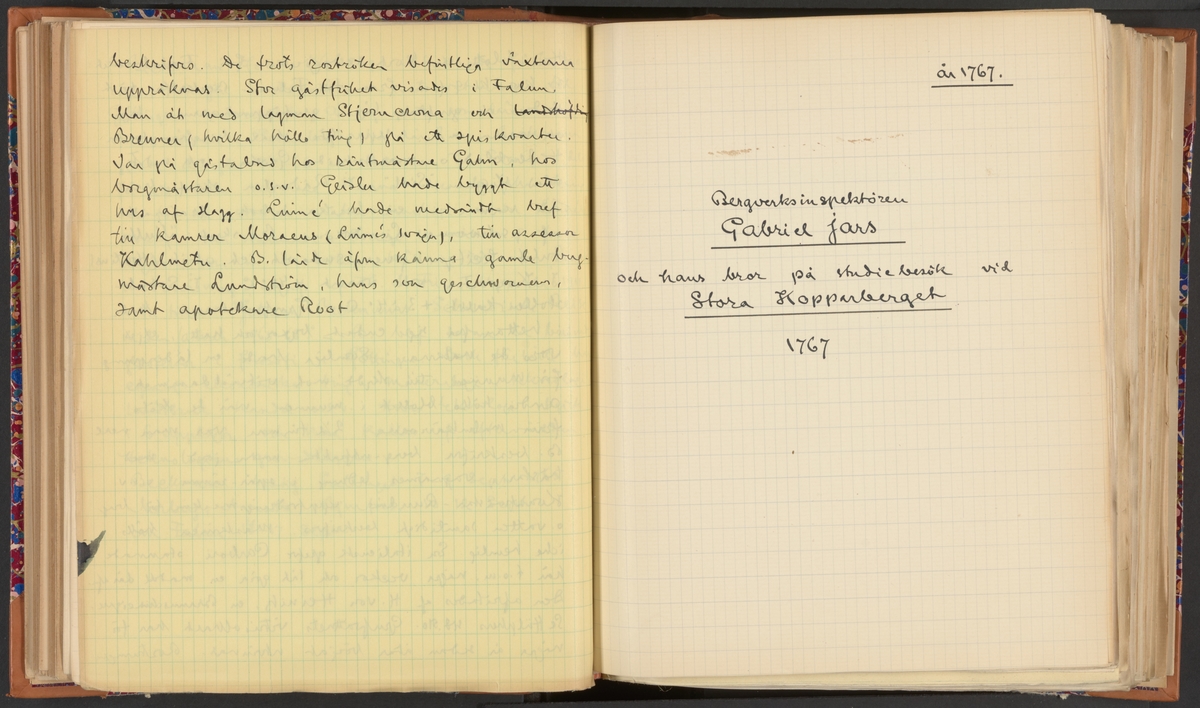 beskrifvs. De trots roströken befintliga växterna
uppräknas. Stor gästfrihet visades i Falun
Man åt med lagman Stjerncrona och landshöfding
Brenner (hvilka höllo ting) på ett spiskvarter.
Var på gästabud hos räntmästare Gahn, hos
borgmästaren o.s.v. Geisler hade byggt ett
hus af slagg. Linné hade medsändt bref
till kamrer Moraeus (Linnés svåger), till assessor
Kahlmeter. B. lärde äfven känna gamle berg-
mästare Lundström, hans son geschwornern,
samt apotekare Root
år 1767.
Bergverksinspektören
Gabriel Jars
och hans bror på studiebesök vid
Stora Kopparberget
1767